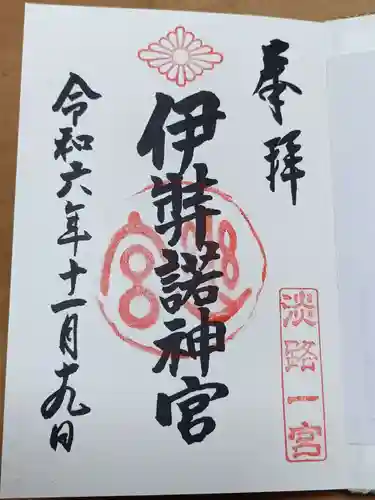 奉拝
淡路一宮
伊弉諾神宮
令和六年十一月十九日